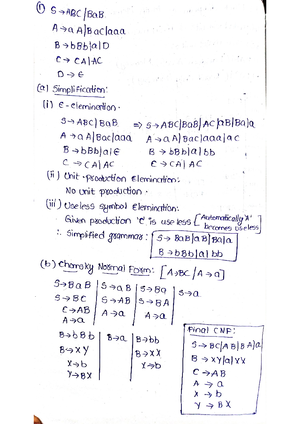 ① S→ABC|BaB
A→aA|BaC|aaa
B→bBb|a|D
C→CA|AC
D→ε
(a) Simplification:
(i) ε-elemination.
S→ABC|BaB ⇒ S→ABC|BaB|AC|aB|Ba|a
A→aA|Bac|aaa A→aA|Bac|aaa|ac
B→bBb|a|ε B→bBb|a|bb
C→CA|AC C→CA|AC
(ii) Unit-Production Elemination:
No unit production.
(iii) Useless symbol Elemination:
Given production 'C' is useless [Automatically 'A' becomes useless]
∴ Simplified grammar: S→BaB|aB|Ba|a
B→bBb|a|bb
(b) Chomsky Normal Form: [A→BC/A→a]
S→BaB S→aB S→Ba S→a
S→BC S→AB S→BA
C→AB A→a A→a
A→a
B→bBb B→a B→bb
B→XY B→XX
X→b X→b
Y→BX
Final CNF:
S→BC|AB|BA|a
B→XY|a|XX
C→AB
A→a
X→b
Y→BX